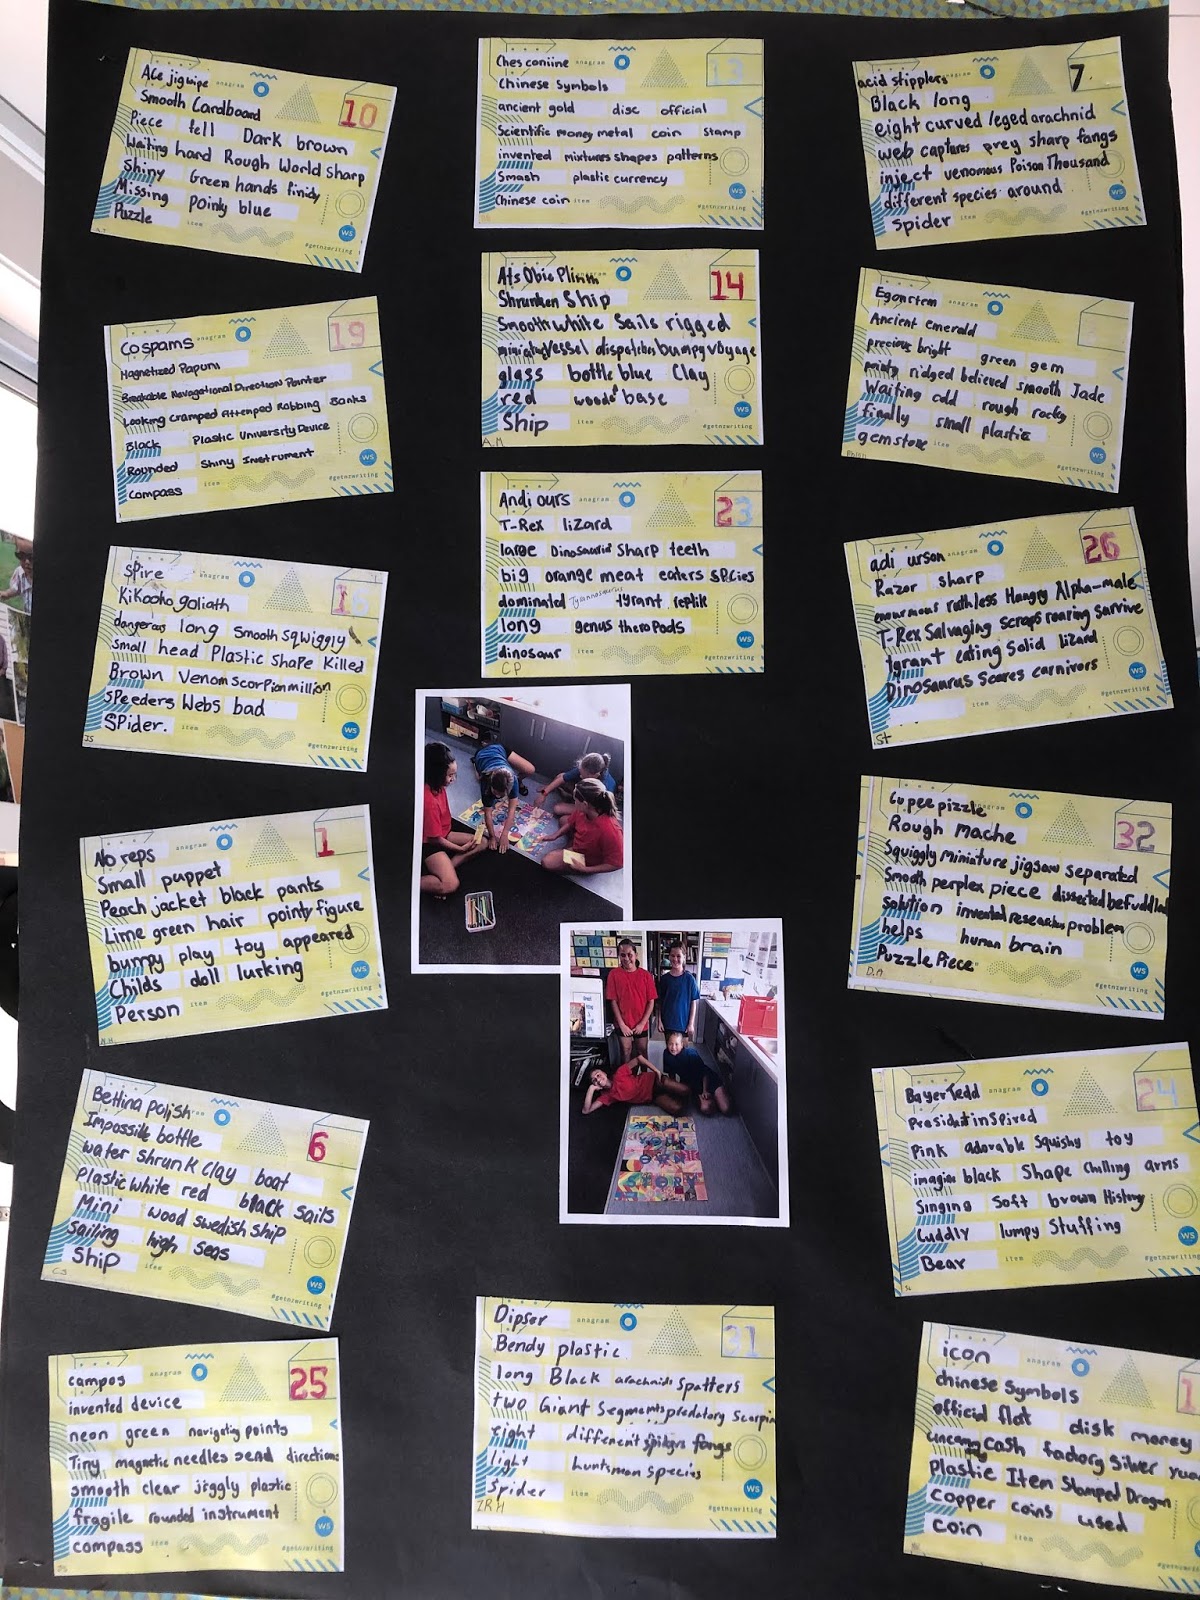 Ace jigwipe anagram
10
Smooth Cardboard
Piece fell Dark brown
Waiting hard Rough World sharp
Shiny Green hands finidy
Missing Pointy blue
Puzzle item
WS
#getnzwriting
Ches coniine anagram
13
Chinese Symbols
ancient gold disc official
Scientific money metal coin stamp
invented mixtures shapes patterns
Smash plastic currency
Chinese coin item
WS
#getnzwriting
acid stipplers anagram
7
Black long
eight curved leged arachnid
web captures prey sharp fangs
inject venomous Poison Thousand
different species around
Spider item
WS
#getnzwriting
Cospams anagram
19
Magnetized Papuni
Breakable Navagational Direction Pointer
Looking Cramped Attenped Robbing Banks
Black Plastic University Device
Rounded Shiny Instrument
Compass item
WS
#getnzwriting
Ats Obie
14
Shrunken Ship
Smooth white Sails rigged
miniature vessel dispatches bumpy voyage
glass bottle blue Clay
red wood base
Ship item
A.M
WS
#getnzwriting
Egonstem anagram
Ancient emerald
precious bright green gem
minty ridged believed smooth Jade
Waiting odd rough rocky
finally small plastic
gemstone item
WS
#getnzwriting
Andi ours anagram
23
T-Rex lizard
large Dinosauria Sharp teeth
big orange meat eaters species
dominated Tyrannosaurus tyrant reptile
long genus theropods
dinosaur item
CP
WS
#getnzwriting
adi urson anagram
26
Razor sharp
enourmous ruthless Hangry Alpha-male
T-Rex Salvaging scraps roaring Survive
tyrant eating Solid lizard
Dinosaurus Scares carnivors
item
St
WS
#getnzwriting
Spire anagram
Kikooho goliath
dangerous long smooth squiggly
Small head Plastic shape killed
Brown Venom scorpion million
speeders Webs bad
Spider. item
JS
WS
#getnzwriting
No reps anagram
1
Small puppet
Peach jacket black pants
Lime green hair pointy figure
bumpy play toy appeared
Childs doll lurking
Person item
N.H.
WS
#getnzwriting
Cupeepizzle anagram
32
Rough Mache
Squiggly miniature jigsaw separated
Smooth perplex piece dissected befuddled
solution invented research problem
helps human brain
Puzzle Piece
D.M
#getnzwriting
Bettina polish anagram
6
Impossible bottle
water shrunk clay boat
Plastic white red black sails
Mini wood swedish ship
Sailing high seas
Ship item
C.S
WS
#getnzwriting
BayerTedd anagram
24
President inspired
Pink adorable squishy toy
imagine black Shape Chilling arms
Singing Soft brown History
Cuddly lumpy Stuffing
Bear item
WS
#getnzwriting
WRITE
YOUR
OWN
STORY
campos anagram
25
invented device
neon green navigating points
Tiny magnetic needles send directions
smooth clear jiggly plastic
fragile rounded instrument
compass item
WS
#getnzwriting
Dipser anagram
31
Bendy plastic
long Black arachnids Spatters
two Giant Segments predatory Scorpin
Eight different spiders fangs
light huntsman species
Spider item
ZRH
WS
#getnzwriting
icon anagram
1
chinese symbols
official flat disk money
cash factory silver yuan
Plastic Item Stamped Dragon
copper coins used
coin item